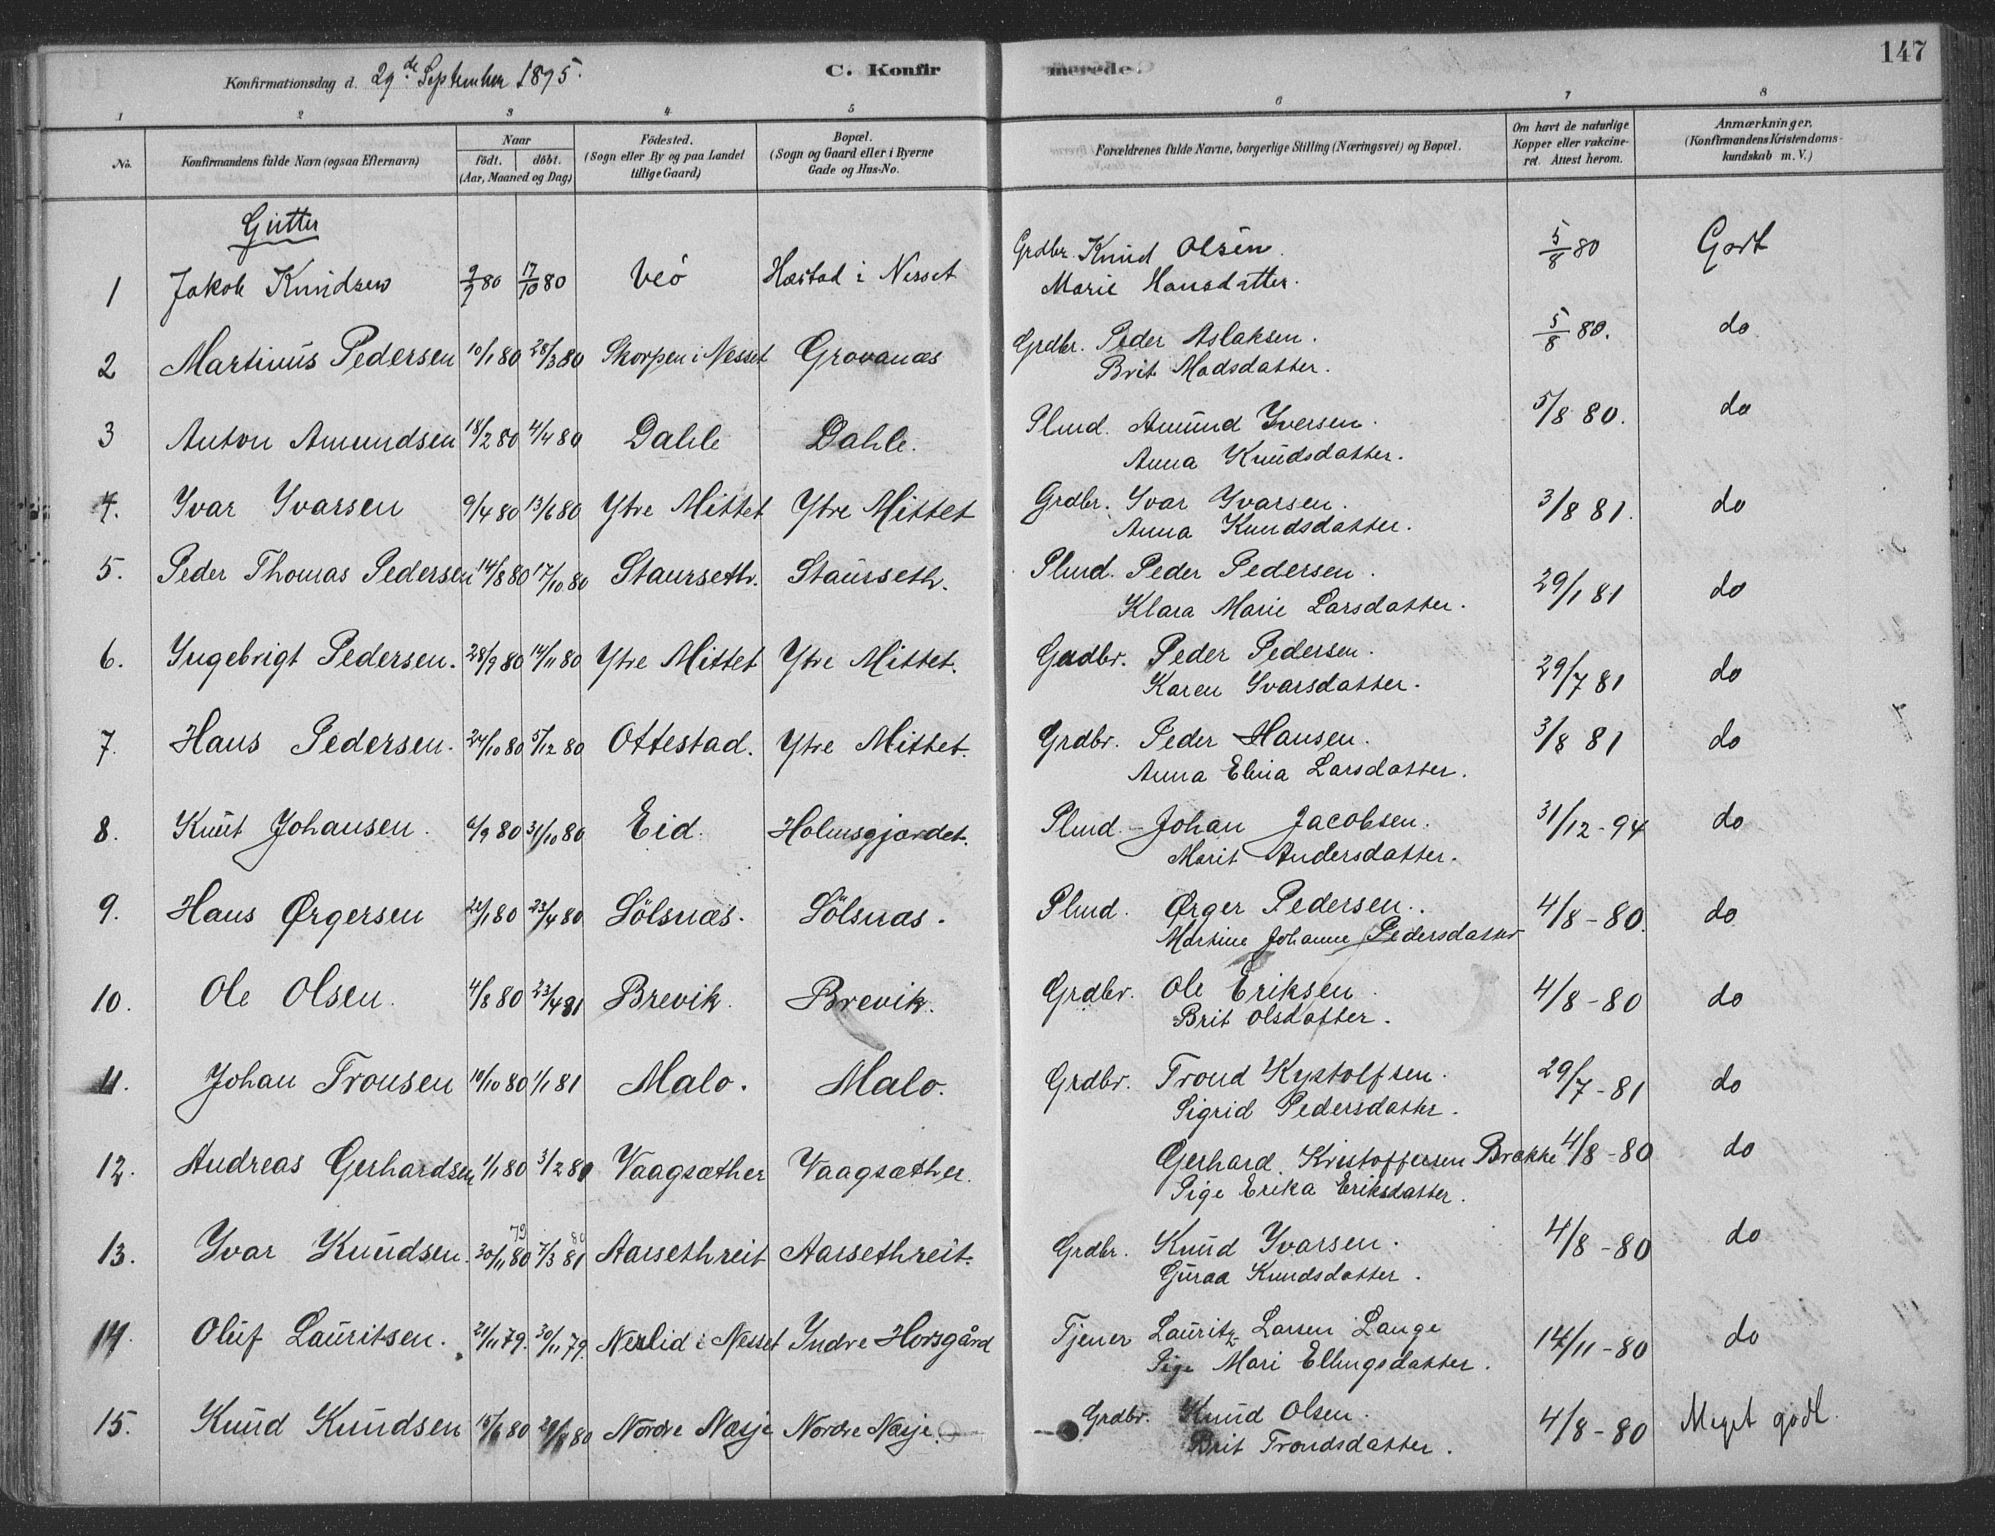 Konfirmationsdag d. 29de September 1895. C. Konfirmerede. 147
1 2 3 4 5 6 7 8
No. Konfirmandens fulde Navn (ogsaa Efternavn) Naar födt. döbt. (Aar, Maaned og Dag) Födested. (Sogn eller By og paa Landet tillige Gaard) Bopæl. (Sogn og Gaard eller i Byerne Gade og Hus-No. Forældrenes fulde Navne, borgerlige Stilling (Næringsvei) og Bopæl. Om havt de naturlige Kopper eller vakcineret. Attest herom. Anmærkninger. (Konfirmandens Kristendomskundskab m. V.)
Gutter
1 Jakob Knudsen 9/7 80 17/10 80 Veö Hæstad i Nesset Grdbr. Knud Olsen. 5/8 80 Godt
Marie Hansdatter.
2 Martinus Pedersen 10/1 80 28/3 80 Skorpen i Nesset Grovanæs Grdbr. Peder Aslaksen. 5/8 80. do
Brit Madsdatter.
3 Anton Amundsen 18/2 80 4/4 80 Dahle Dahle. Plmd. Amund Yversen. 5/8 80. do
Anna Knudsdatter.
4. Yvar Yvarsen 9/4 80 13/6 80 Ytre Mittet Ytre Mittet Grdbr. Yvar Yvarsen. 3/8 81. do
Anna Knudsdatter.
5. Peder Thomas Pedersen 14/8 80 17/10 80 Staurseth. Staurseth. Plmd. Peder Pedersen. 29/1 81 do
Klara Marie Larsdatter.
6. Yngebrigt Pedersen. 28/9 80 14/11 80 Ytre Mittet Ytre Mittet. Grdbr. Peder Pedersen. 29/7 81 do
Karen Yvarsdatter.
7. Hans Pedersen. 24/10 80 5/12 80 Ottestad. Ytre Mittet. Grdbr. Peder Hansen. 3/8 81 do
Anna Elina Larsdatter.
8. Knut Johansen. 6/9 80 31/10 80 Eid. Holmsgjærdet. Plmd. Johan Jacobsen. 31/12-94 do
Marit Andersdatter.
9. Hans Ørgersen 22/1 80 23/4 80 Sölsnæs. Sölsnæs. Plmd. Ørger Pedersen. 4/8-80. do
Martine Johanne Pedersdatter
10. Ole Olsen. 4/8 80 23/4 81 Brevik. Brevik. Grdbr. Ole Eriksen. 4/8-80 do
Brit Olsdatter.
11. Johan Tronsen 10/10 80 1/1 81 Malo. Malo. Grdbr. Trond Kystolfsen. 29/7-81 do
Sigrid Pedersdatter.
12. Andreas Gerhardsen 1/1 80 3/2 80 Vaagsæther Vaagsæther. Gerhard Kristoffersen Brække 4/8-80 do
Pige Erika Eriksdatter.
13. Yvar Knudsen. 30/11 80 79 7/3 81 80 Aarsethreit Aarsethreit. Grdbr. Knud Yvarsen. 4/8-80 do
Guraa Knudsdatter.
14. Oluf Lauritsen. 21/11 79. 30/11 79. Neslid i Nesset Yndre Horsgård Tjener Lauritz Larsen Lange 14/11-80 do
Pige Mari Ellingsdatter.
15. Knud Knudsen 15/6 80 29/8 80 Nordre Næsje Nordre Næsje. Grdbr. Knud Olsen. 4/8-80 Meget godt.
Brit Trondsdatter.